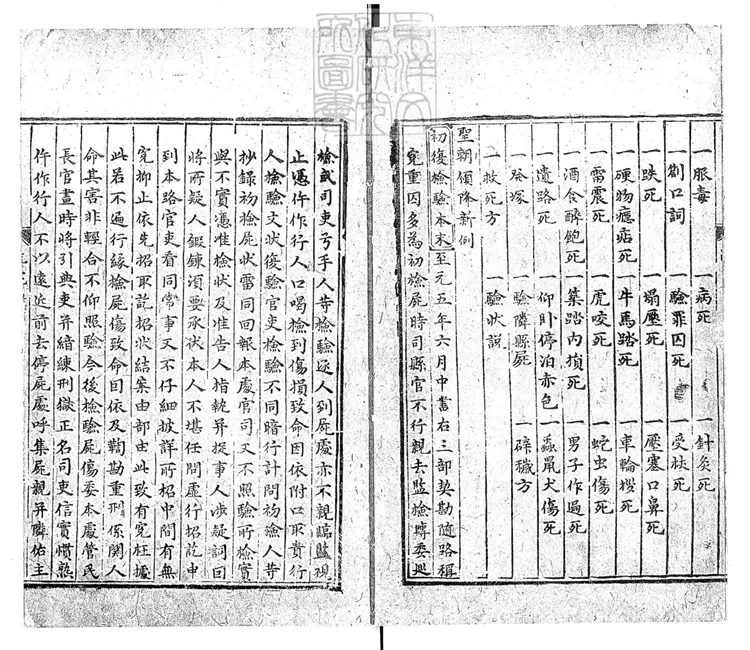 一服毒
一病死
一針灸死
一劄口詞
一驗罪囚死
一受杖死
一跌死
一塌壓死
一壓塞口鼻死
一硬物癮痁死
一牛馬踏死
一車輪拶死
一雷震死
一虎咬死
一蛇虫傷死
一酒食醉飽死
一築踏內損死
一男子作過死
一遺路死
一仰卧停泊赤色
一蟲鼠犬傷死
一發塚
一驗隣縣屍
一辟穢方
一救死方
一驗狀說
聖朝頒降新例
初復檢驗本末至元五年六月中書右三部契勘隨路稱
冤重囚多為初檢屍時司縣官不行親去監檢轉委巡
檢或司吏弓手人等檢驗逐人到屍處亦不親臨監視
止憑仵作行人口喝檢到傷損致命因依附口取責行
人檢驗文狀復驗官吏檢驗不同暗行計問初檢人等
抄錄初檢屍狀雷同回報本處官司又不照驗所檢實
與不實憑准檢狀及准告人指執弁捉事人涉疑詞因
將所疑人鍛鍊須要承伏本人不堪任問虛行招訖申
到本路官吏看同常事又不仔細披詳所招中間有無
冤抑止依先招取訖招狀結案申部由此致有冤枉據
此若不遍行緣檢屍傷致命因依及鞫勘重刑係關人
命其害非輕合不仰照驗今後檢驗屍傷委本處管民
長官畫時將引典吏弁諳練刑獄正名司吏信實慣熟
仵作行人不以遠近前去停屍處呼集屍親弁隣佑主